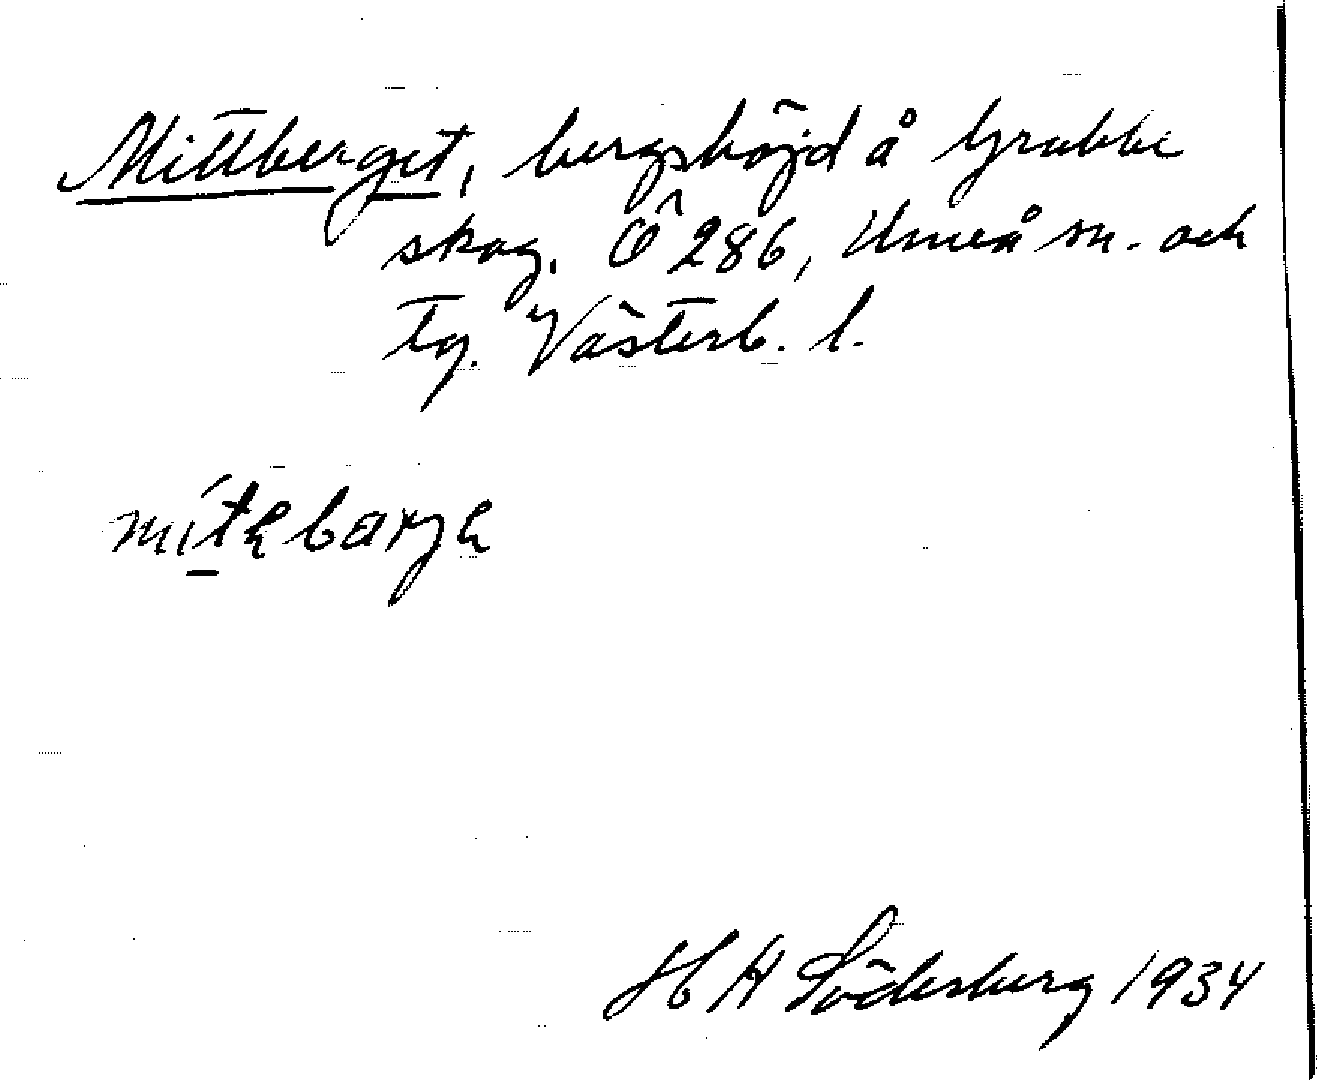 Mittberget, bergshöjd å Grubbe
skog. Ö 286, Umeå sn. och
tg. Västerb. l.
H A Söderberg 1934